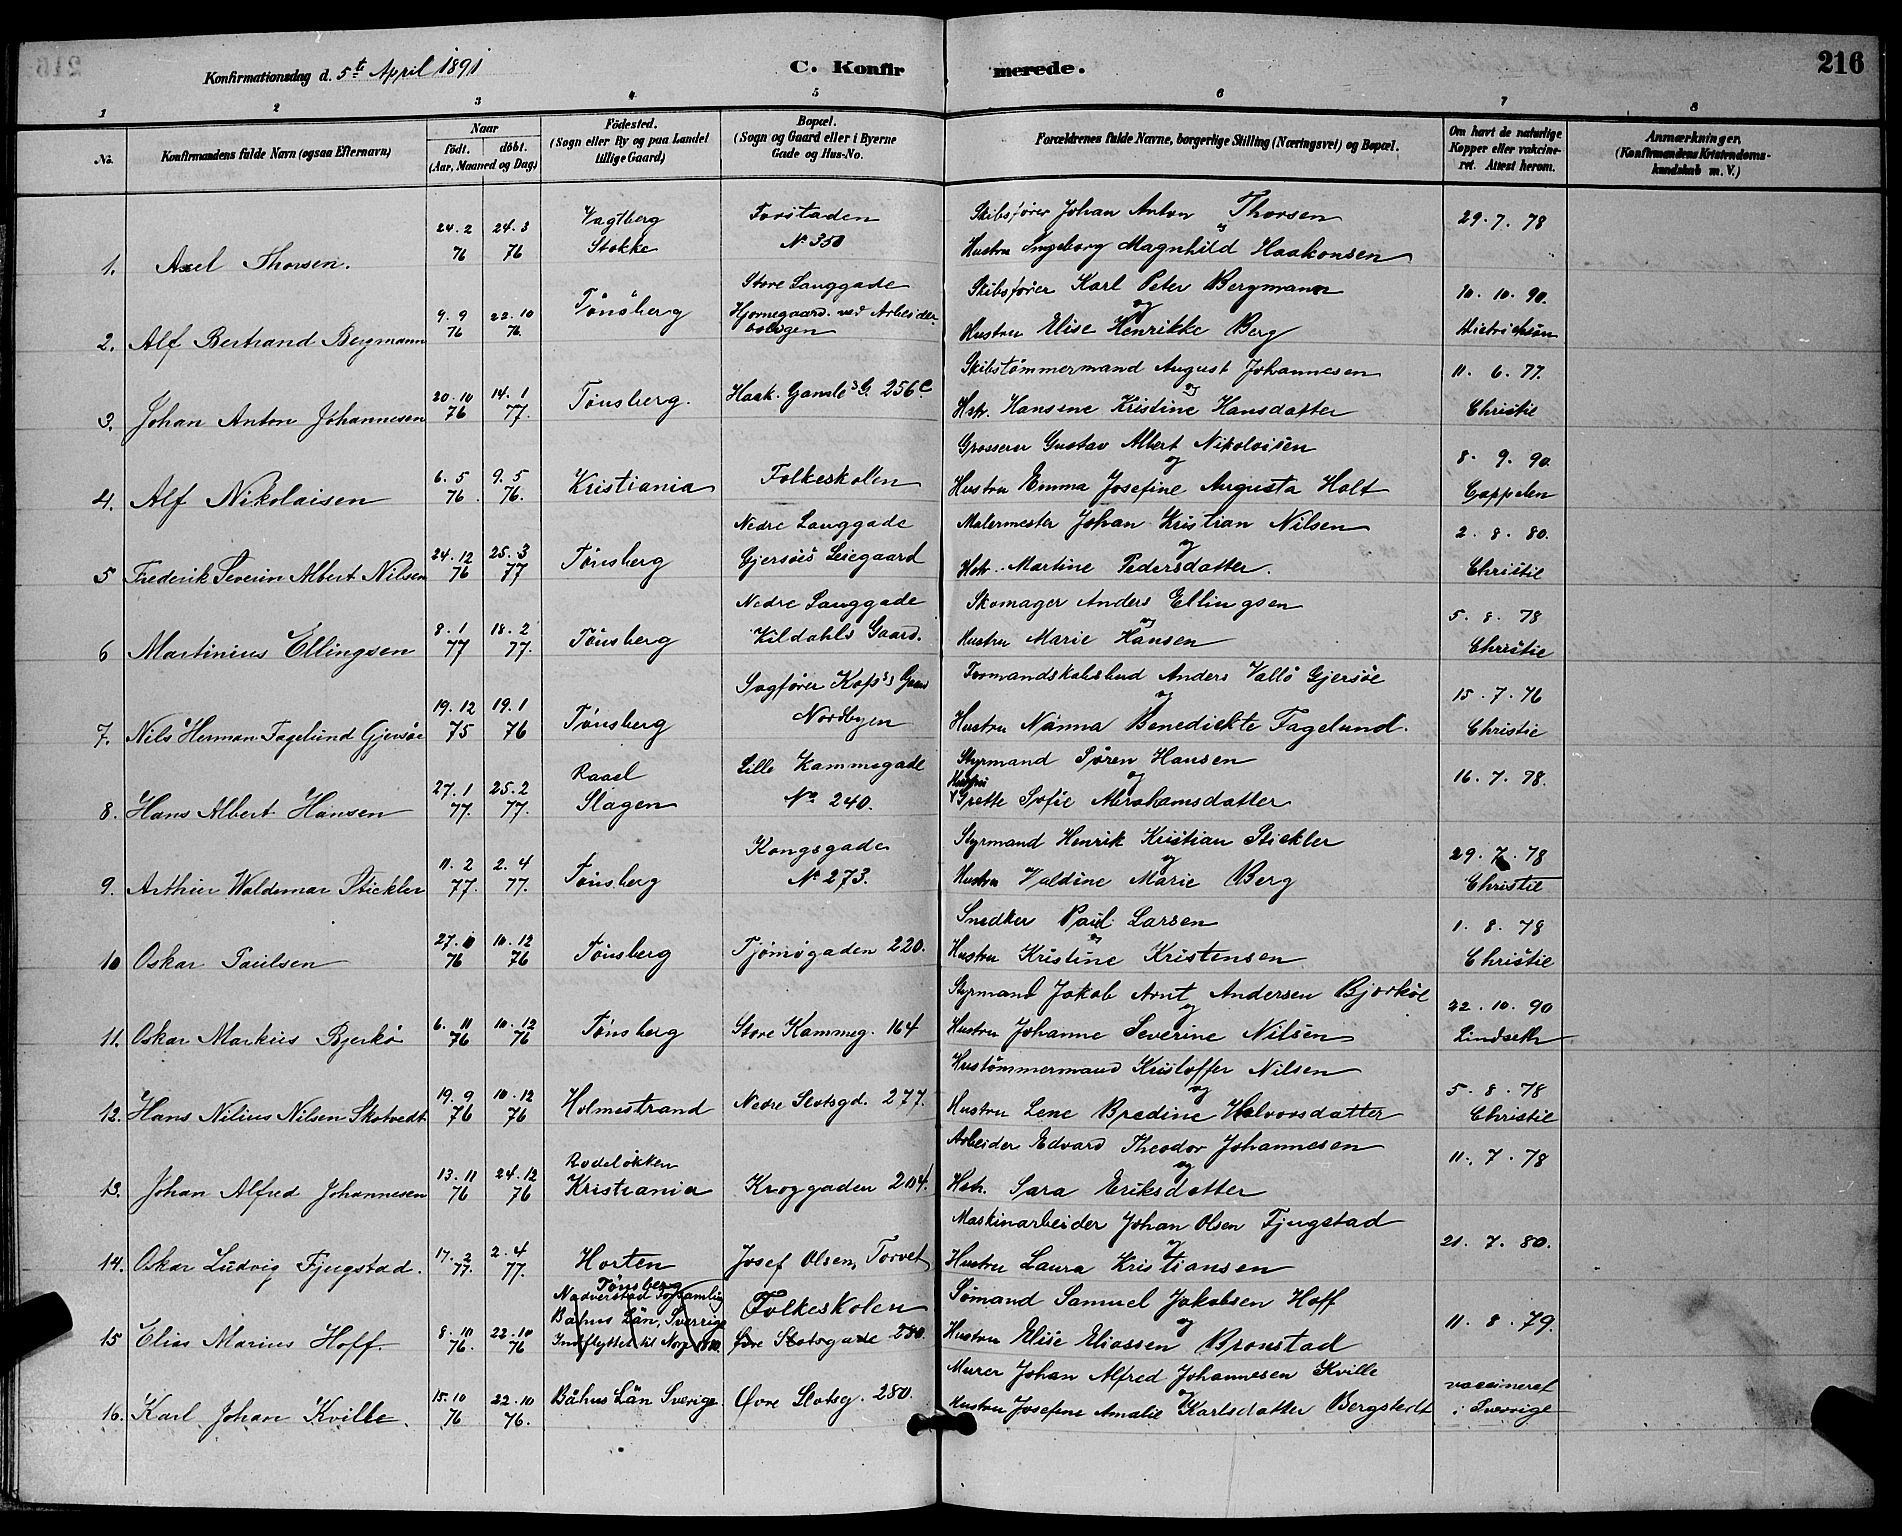 Konfirmationsdag d. 5te April 1891 C. Konfirmerede. 216
1 2 3 4 5 6 7 8
No. Konfirmandens fulde Navn (ogsaa Efternavn) Naar født. døbt. (Aar, Maaned og Dag) Fødested. (Sogn eller By og paa Landet tillige Gaard) Bopæl. (Sogn og Gaard eller i Byerne Gade og Hus-No. Forældrenes fulde Navne, borgerlige Stilling (Næringsvei) og Bopæl. Om havt de naturlige Kopper eller vakcineret. Attest herom. Anmærkninger. (Konfirmandens Kristendomskundskab m. V.)
24.2 24.3 Vagtberg Forstaden Skibsfører Johan Anton Thorsen 29. 7. 78
76 76 Stokke No 350 og
1. Axel Thorsen. Hustru Ingeborg Magnhild Haakonsen
Store Langgade Skibsfører Karl Peter Bergmann 10. 10. 90.
9.9 22.10 Tønsberg Hjørnegaard. ved Arbeider- og
2. Alf Bertrand Bergmann 76 76. boligen Hustru Elise Henrikke Berg Dietrichson
Skibstømmermand August Johannesen 11. 6. 77.
20.10 14.1 Tønsberg. Haak. Gamles G. 256 C. og
3. Johan Anton Johannesen 76 77. Hstr. Hansene Kristine Hansdatter Christie
Grosserer Gustav Albert Nikolaisen 8. 9. 90.
6.5 9.5 Kristiania Folkeskolen og
4. Alf Nikolaisen 76. 76. Hustru Emma Josefine Augusta Holt Cappelen
Nedre Langgade Malermester Johan Kristian Nilsen 2. 8. 80.
24.12 25.3 Tønsberg Gjersøes Leiegaard og
5 Frederik Severin Albert Nilsen 76 77 Hstr. Martine Pedersdatter. Christie
Nedre Langgade Skomager Anders Ellingsen 5. 8. 78
8.1 18.2 Tønsberg Kildahls Gaard. og
6 Martinius Ellingsen 77 77. Hustru Marie Hansen Christie
Sagfører Kops's Gaard Formandskabsbud Anders Vallø Gjersøe 15. 7. 76
19.12 19.1 Tønsberg Nordbyen og
7. Nils Herman Fagelund Gjersøe 75 76 Hustru Nanna Benedickte Fagelund. Christie
Raael Lille Kammegade Styrmand Søren Hansen 16. 7. 78.
27.1 25.2 Slagen No 240. og
8. Hans Albert Hansen 77. 77. Hustru Grette Sofie Abrahamsdatter
Kongsgade Styrmand Henrik Kristian Stickler 29. 7. 78
11.2 2.4 Tønsberg No 273. og
9. Arthur Waldemar Stickler 77. 77. Hustru Valdine Marie Berg Christie
Snedker Paul Larsen 1. 8. 78
10.12 Tønsberg Tjømøgaden 220. og
10 Oskar Paulsen 76 76 Hustru Kristine Kristensen Christie
Styrmand Jakob Arnt Andersen Bjørkøe 22. 10. 90
6.11 10.12 Tønsberg Store Kammeg. 164 og
11. Oskar Markus Bjerkø 76 76 Hustru Johanne Severine Nilsen Lindseth
Hustømmermand Kristoffer Nilsen 5. 8. 78
19.9 10.12 Holmestrand Nedre Slotsgd. 277. og
12. Hans Nilius Nilsen Skotvedt 76 76 Hustru Lene Bredine Halvorsdatter Christie
Rodeløkken Arbeider Edvard Theodor Johannesen 11. 7. 78
13.11 24.12 Kristiania Kroggaden 204. og
13. Johan Alfred Johannesen 76 76 Hstr. Sara Eriksdatter
Maskinarbeider Johan Olsen Fjugstad 21. 7. 80.
17.2 2.4 Horten Josef Olsen, Torvet og
14. Oskar Ludvig Fjugstad. 77. 77. Hustru Laura Kristiansen
Tønsberg
Naverstad Forsamling Folkeskolen Sømand Samuel Jakobsen Hoff 11. 8. 79.
8.10 22.10 Båhus Län, Sverrige og
15 Elias Marius Hoff. 76. 76 Indflyttet til Norge Øvre Slotsgade 280. Hustru Elise Eliassen Bronstad
Murer Johan Alfred Johannesen Kville vaccineret
15.10 22.10 Båhus Län Sverige Øvre Slotsg. 280. og
16. Karl Johan Kville. 76 76. Hustru Josefine Amalie Karlsdatter Bergstedt i Sverrige